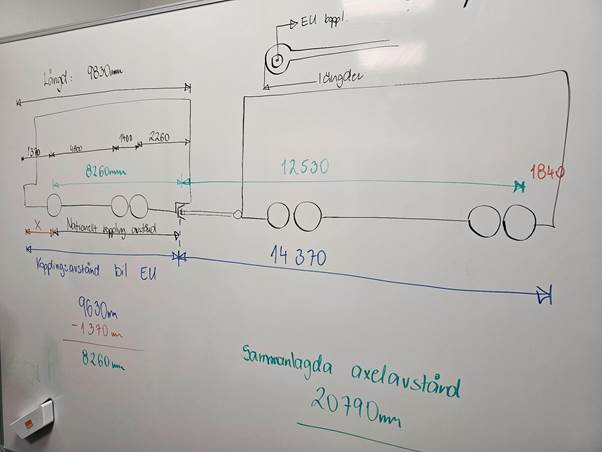 EU koppl.
Längd: 9830mm
längden
1370 4800 1400 2260
8260mm
12530
1840
X Nationellt koppling avstånd
14370
Kopplingsavstånd bil EU
9630m
-1370m
8260mm
Sammanlagda axelavstånd
20790mm